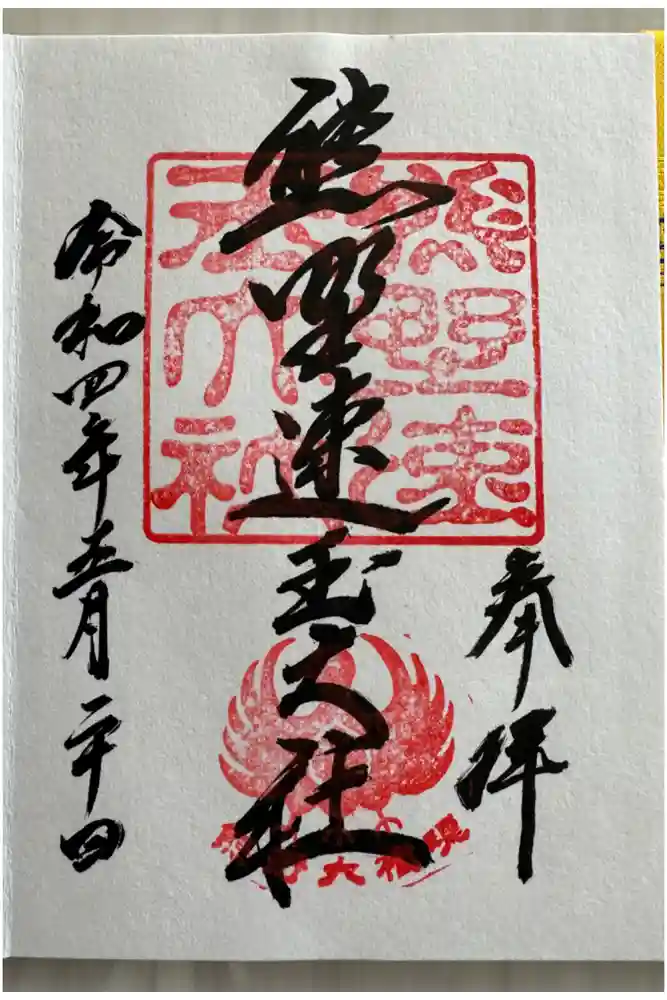 奉拝
熊野速玉大社
令和四年五月二十日
熊野速玉大社